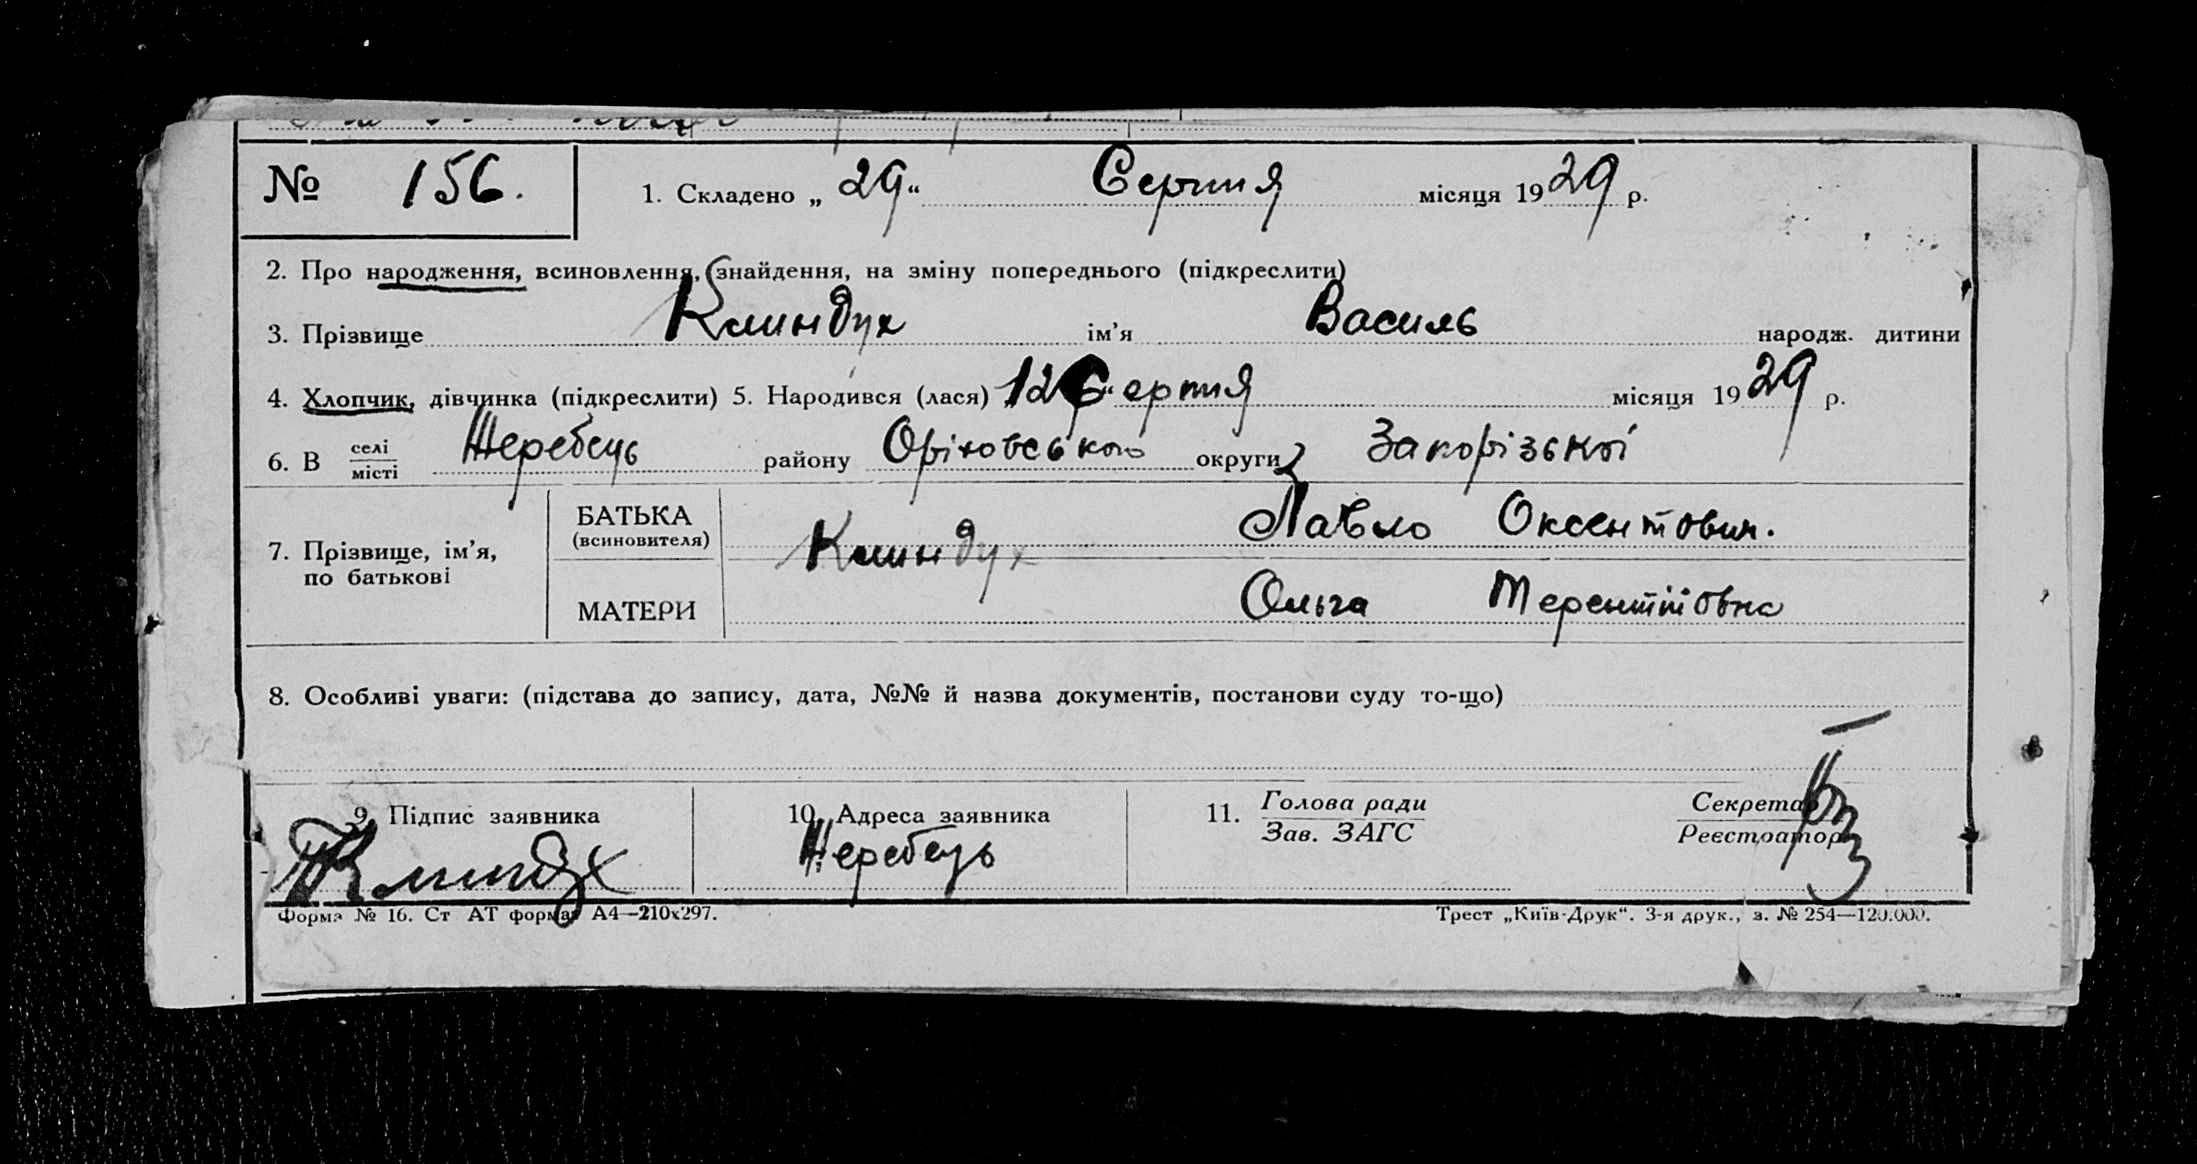 № 156. 1. Складено „ 29 “ Серпня місяця 1929 р.
2. Про народження, всиновлення, знайдення, на зміну попереднього (підкреслити)
3. ПрізвищеКлиндух ім’я Василь народж. дитини
4. Хлопчик, дівчинка (підкреслити) 5. Народився (лася) „12“ Серпня місяця 1929 р.
6. В селі/місті Жеребець району Оріховського округи Запорізької
7. Прізвище, ім’я, по батькові
БАТЬКА (всиновителя) Клиндух Павло Оксентович.
МАТЕРИ Ольга Терентіївна
8. Особливі уваги: (підстава до запису, дата, №№ й назва документів, постанови суду то-що)
9. Підпис заявника 10. Адреса заявника 11. Голова ради Секретар
Зав. ЗАГС Реєстратор
Клиндух Жеребець
Форма № 16. Ст АТ формат А4—210х297. Трест „Київ-Друк“. 3-я друк., з. № 254—120.000.